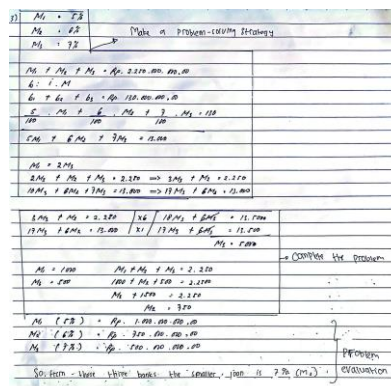 3) M₁ = 5%
M₂ = 6%
M₃ = 7%
Make a problem-solving strategy
M₁ + M₂ + M₃ = Rp. 2.250.000.000,00
b = i . M
b₁ + b₂ + b₃ = Rp. 130.000.000,00
5/100 . M₁ + 6/100 . M₂ + 7/100 . M₃ = 130
5M₁ + 6M₂ + 7M₃ = 13.000
M₁ = 2M₃
2M₃ + M₂ + M₃ = 2.250 => 3M₃ + M₂ = 2.250
10M₃ + 6M₂ + 7M₃ = 13.000 => 17M₃ + 6M₂ = 13.000
3M₃ + M₂ = 2.250 | x6 | 18M₃ + 6M₂ = 13.500
17M₃ + 6M₂ = 13.000 | x1 | 17M₃ + 6M₂ =
M₃ =
Complete the problem
M₁ = 1000 M₁ + M₂ + M₃ = 2.250
M₃ = 500 1000 + M₂ + 500 = 2.250
M₂ + 1500 = 2.250
M₂ = 750
M₁ (5%) = Rp. 1.000.000.000,00
M₂ (6%) = Rp. 750.000.000,00
M₃ (7%) = Rp. 500.000.000,00
Problem evaluation
So, from these three banks the smaller loan is 7% (M₃).